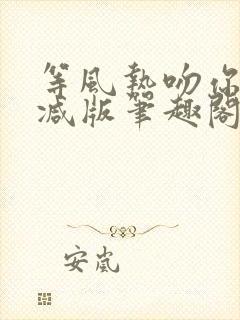 等風熱吻你
減版笔趣閣
安嵐